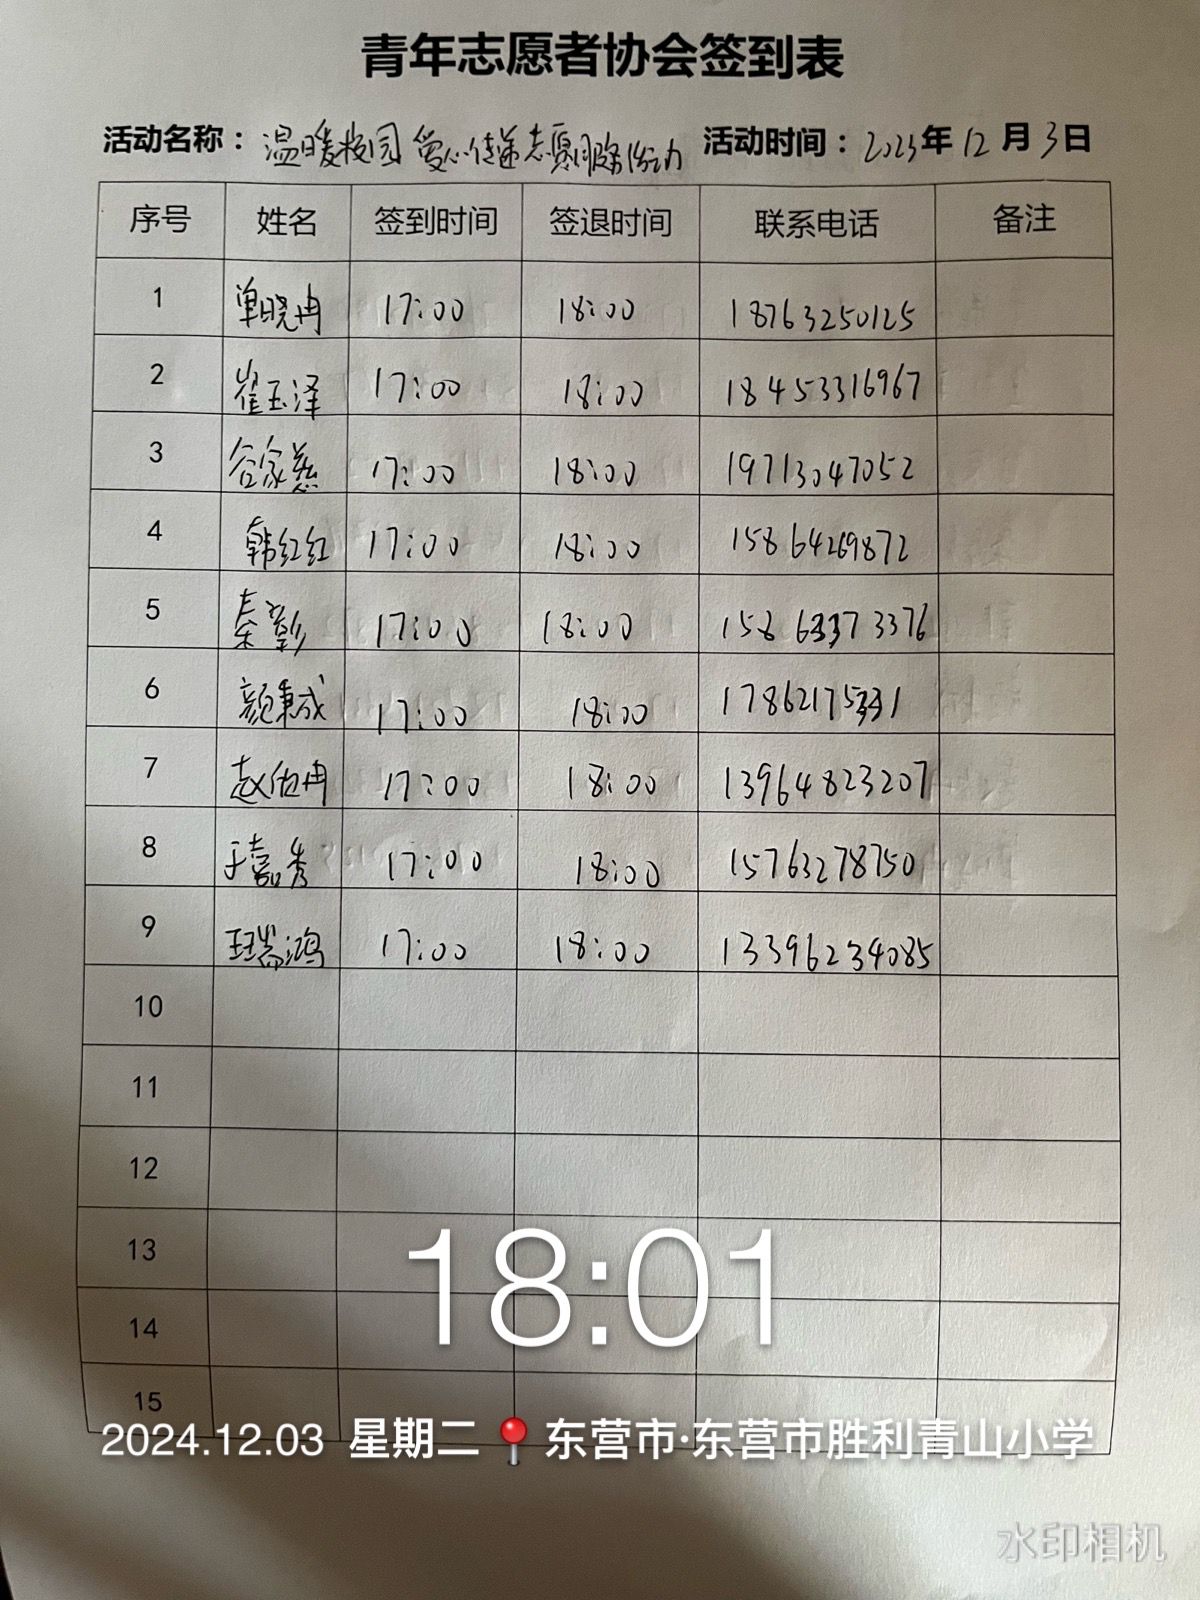 青年志愿者协会签到表
活动名称： 温暖校园 爱心传递志愿服务活动 活动时间：2023年12月3日
序号 姓名 签到时间 签退时间 联系电话 备注
1 单晓冉 17:00 18:00 18763250125
2 崔玉泽 17:00 18:00 18453316967
3 谷家慈 17:00 18:00 19713047052
4 韩红红 17:00 18:00 15864269872
5 秦彰 17:00 18:00 15863373376
6 颜秉成 17:00 18:00 17862175331
7 赵伯冉 17:00 18:00 13964823207
8 于嘉秀 17:00 18:00 15763278750
9 瑞鸿 17:00 18:00 13396234085
10
11
12
13
14
15
18:01
2024.12.03 星期二 东营市·东营市胜利青山小学
水印相机